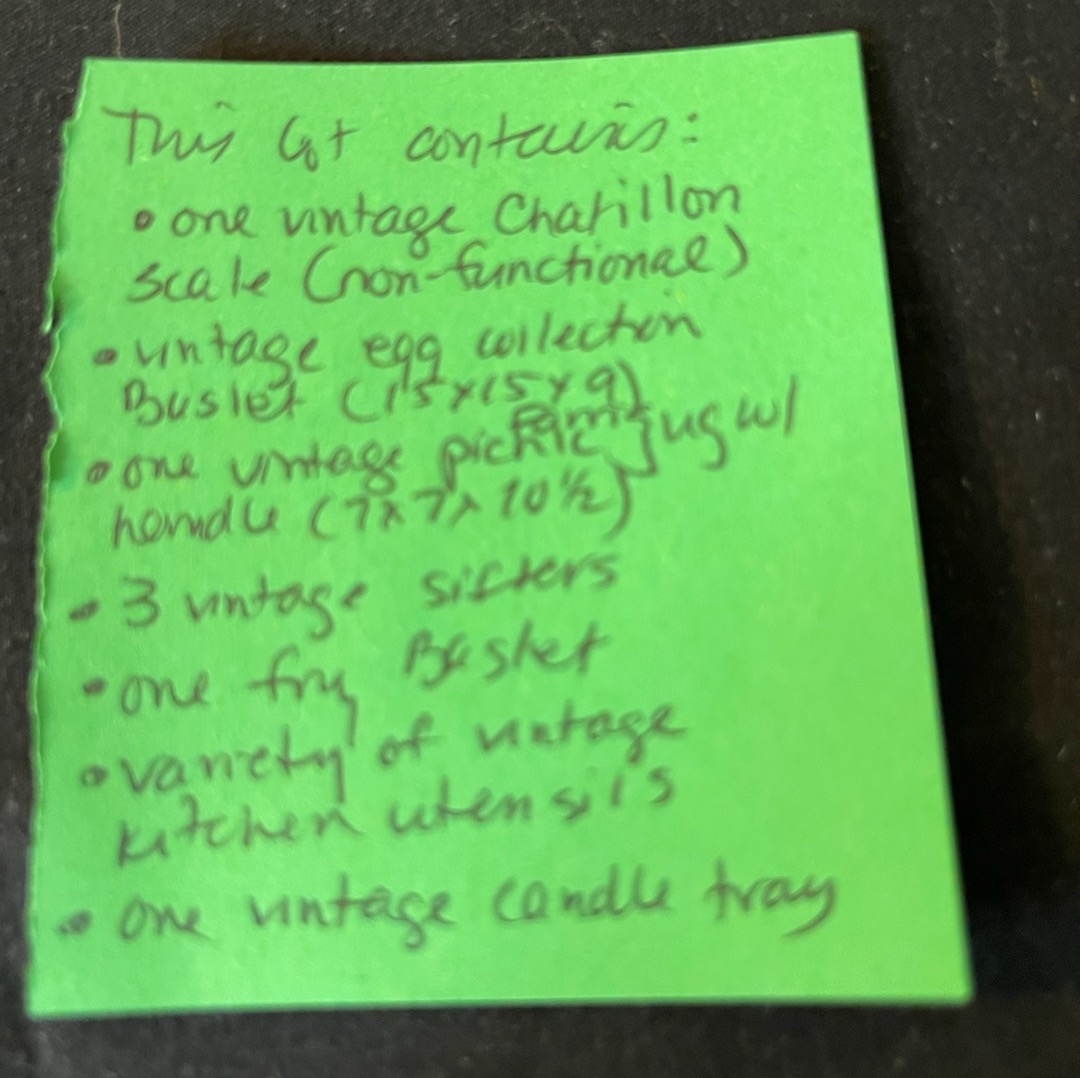 This lot contains:
• one vintage Chatillon
scale (non-functional)
• vintage egg collection
Basket (15x15x9)
• one vintage picnic jug w/
handle (7x7x10½)
• 3 vintage sifters
• one fry Basket
• variety of vintage
kitchen utensils
• one vintage candle tray